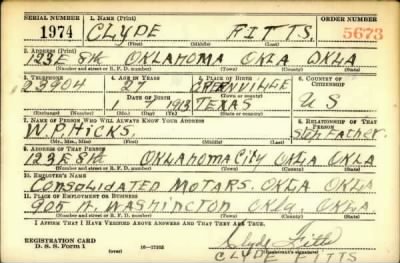 SERIAL NUMBER 1. NAME (Print) ORDER NUMBER
1974 CLYDE FITTS. 5673
(First) (Middle) (Last)
2. ADDRESS (Print)
123 E 8th OKLAHOMA OKLA OKLA
(Number and street or R. F. D. number) (Town) (County) (State)
3. TELEPHONE 4. AGE IN YEARS 5. PLACE OF BIRTH 6. COUNTRY OF CITIZENSHIP
23904 27 GREENVILLE
(Town or county)
1 7 1913 TEXAS U S
7. NAME OF PERSON WHO WILL ALWAYS KNOW YOUR ADDRESS 8. RELATIONSHIP OF THAT PERSON
W. P. Hicks. Step Father.
(Mr., Mrs., Miss) (First) (Middle) (Last)
9. ADDRESS OF THAT PERSON
123 E 8th Oklahoma City OKLA OKLA
(Number and street or R. F. D. number) (Town) (County) (State)
10. EMPLOYER'S NAME
Consolidated Motars. OKLA OKLA
11. PLACE OF EMPLOYMENT OR BUSINESS
905 N. Washington Okla. OKLA
(Number and street or R. F. D. number) (Town) (County) (State)
I AFFIRM THAT I HAVE VERIFIED ABOVE ANSWERS AND THAT THEY ARE TRUE.
REGISTRATION CARD
D. S. S. Form 1 Clyde Fitts
CLYDE FITTS